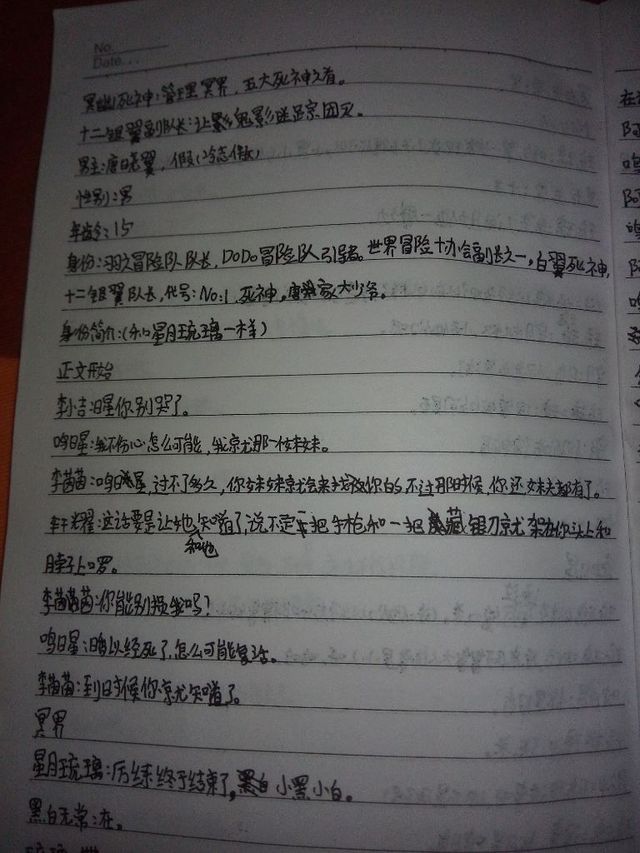 No.
Date...
冥幽死神:管理冥界,五大死神之首。
十二银翼副队长:让影鬼影迷踪团灭。
男主:唐晓翼,假(冷态傲)
性别:男
年龄:15
身份:羽之冒险队队长,DoDo冒险队引导者。世界冒险协会副会长之一,白翼死神,
十二银翼队长,代号:No:1,死神,唐家大少爷。
身份简介:(和星月琉璃一样)
正文开始
李小吉:日星你别哭了。
鸣日星:我不伤心怎么可能,我就那一个妹妹。
李茜茜:鸣日星,过不了多久,你妹妹就会来找你的,不过那时候,你还妹夫都有了。
轩辕耀:这话要是让她和他知道了,说不定一把手枪和一把藏银刀就架在你头上和
脖子上啰。
李茜茜:你能别损我吗?
鸣日星:以经死了,怎么可能复活。
李茜茜:到时候你就知道了。
冥界
星月琉璃:历练终于结束了,小黑小白。
黑白无常:在。
在
阿
鸣
阿
鸣